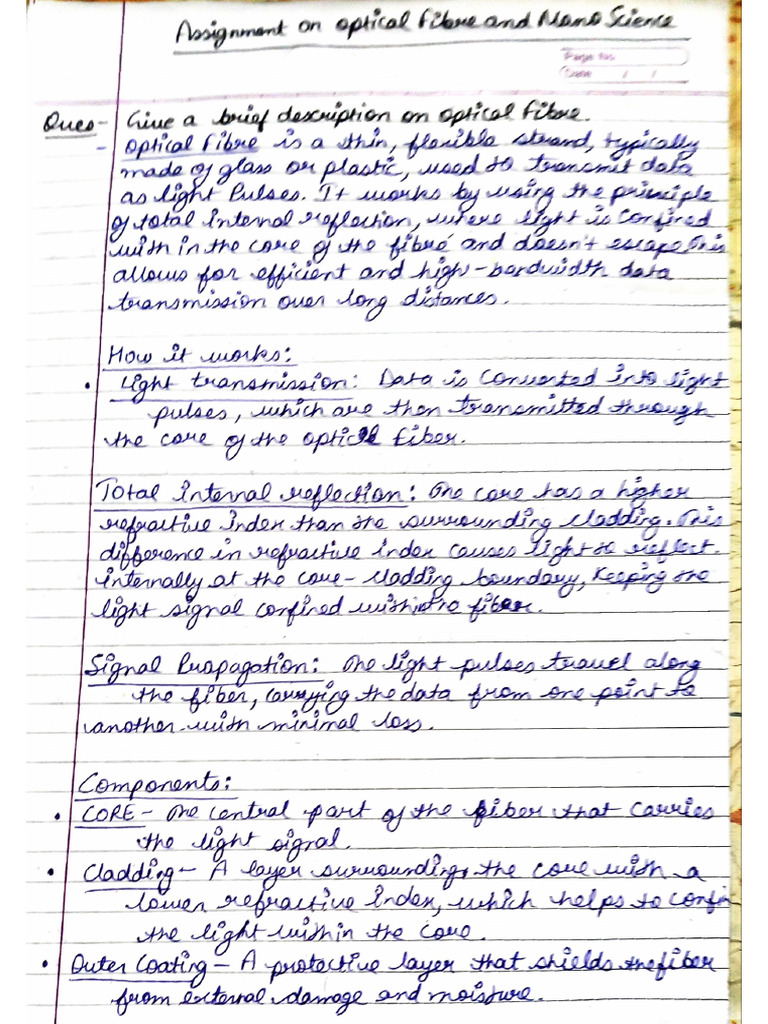 Assignment on optical Fibre and Nano Science
Page No.
Date / /
Ques- Give a brief description on optical Fibre.
- Optical Fibre is a thin, flexible strand, typically
made of glass or plastic, used to transmit data
as light Pulses. It works by using the principle
of total internal reflection, where light is confined
with in the core of the fibre and doesn't escape. This
allows for efficient and high-bandwidth data
transmission over long distances.
How it works:
• Light transmission: Data is converted into light
pulses, which are then transmitted through
the core of the optical fiber.
Total internal reflection: The core has a higher
refractive index than the surrounding cladding. This
difference in refractive index causes light to reflect.
internally at the core-cladding boundary, keeping the
light signal confined within the fiber.
Signal Propagation: The light pulses travel along
the fiber, carrying the data from one point to
another with minimal loss.
Components:
• CORE - The central part of the fiber that carries
the light signal.
• Cladding - A layer surrounding the core with a
lower refractive index, which helps to confin
the light within the core.
• Outer Coating - A protective layer that shields the fiber
from external damage and moisture.